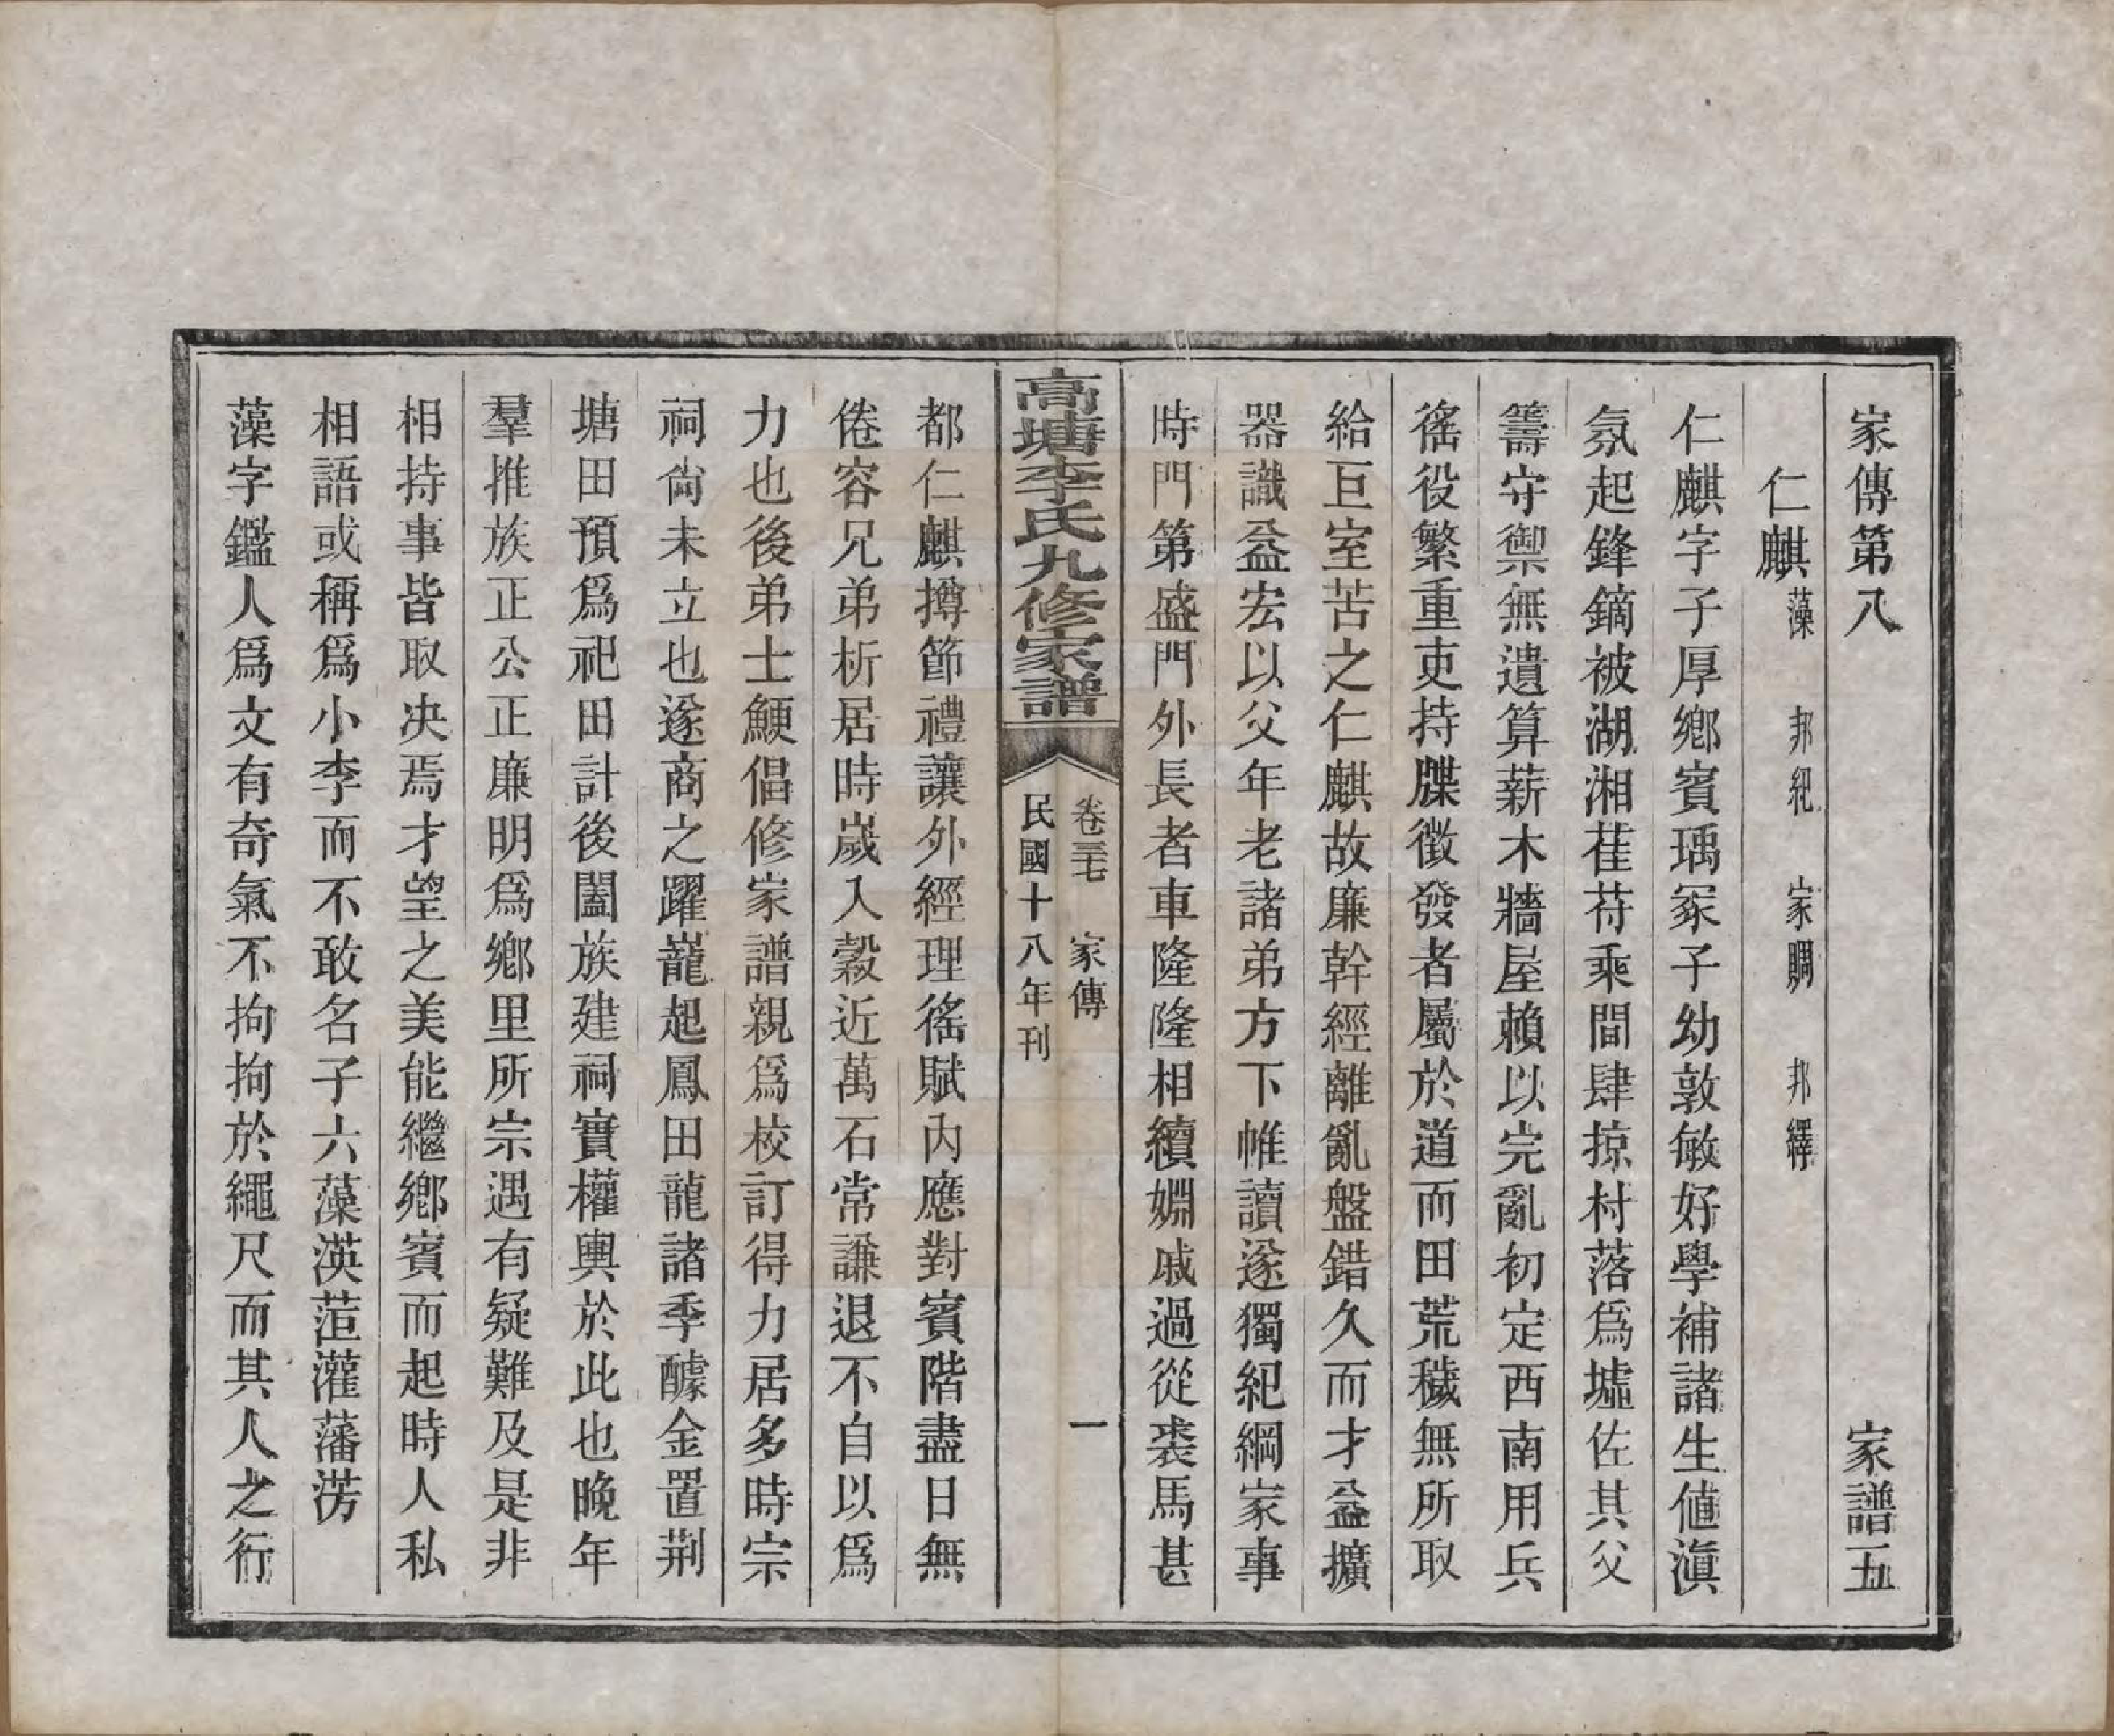 家傳第八　家譜五
仁麒藻　邦紀　家賙　邦繹
仁麒字子厚鄉賓瑀冢子幼敦敏好學補諸生値滇
氛起鋒鏑被湖湘萑苻乘間肆掠村落爲墟佐其父
籌守禦無遺算薪木牆屋賴以完亂初定西南用兵
徭役繁重吏持牒徵發者屬於道而田荒穢無所取
給巨室苦之仁麒故廉幹經離亂盤錯久而才益擴
器識益宏以父年老諸弟方下帷讀遂獨紀綱家事
時門第盛門外長者車隆隆相續婣戚過從裘馬甚
高塘李氏九修家譜
卷三七　家傳　一
民國十八年刊
都仁麒撙節禮讓外經理徭賦內應對賓階盡日無
倦容兄弟析居時歲入穀近萬石常謙退不自以爲
力也後弟士鯁倡修家譜親爲校訂得力居多時宗
祠尙未立也遂商之躍巃起鳳田龍諸季醵金置荆
塘田預爲祀田計後闔族建祠實權輿於此也晚年
羣推族正公正廉明爲鄉里所宗遇有疑難及是非
相持事皆取決焉才望之美能繼鄉賓而起時人私
相語或稱爲小李而不敢名子六藻渶萣灌藩淓
藻字鑑人爲文有奇氣不拘拘於繩尺而其人之行